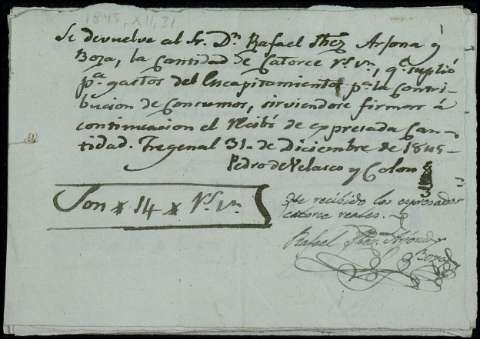 1845, XII, 31
Se devuelve al Sr. Dn. Rafael Shez Arjona y
Boza, la Cantidad de Catorce rs. vn., qe. suplió
pa. gastos del Encapitamiento pa. la Contri-
bucion de Consumos, sirviendose firmar á
continuacion el Recibo de expresada Can-
tidad. Fregenal 31. de Diciembre de 1845-
Pedro de Velasco y Colom
Son # 14 # rs. vn.
He recibido los expresados
catorce reales.
Rafael Shez Arjona
y Boza